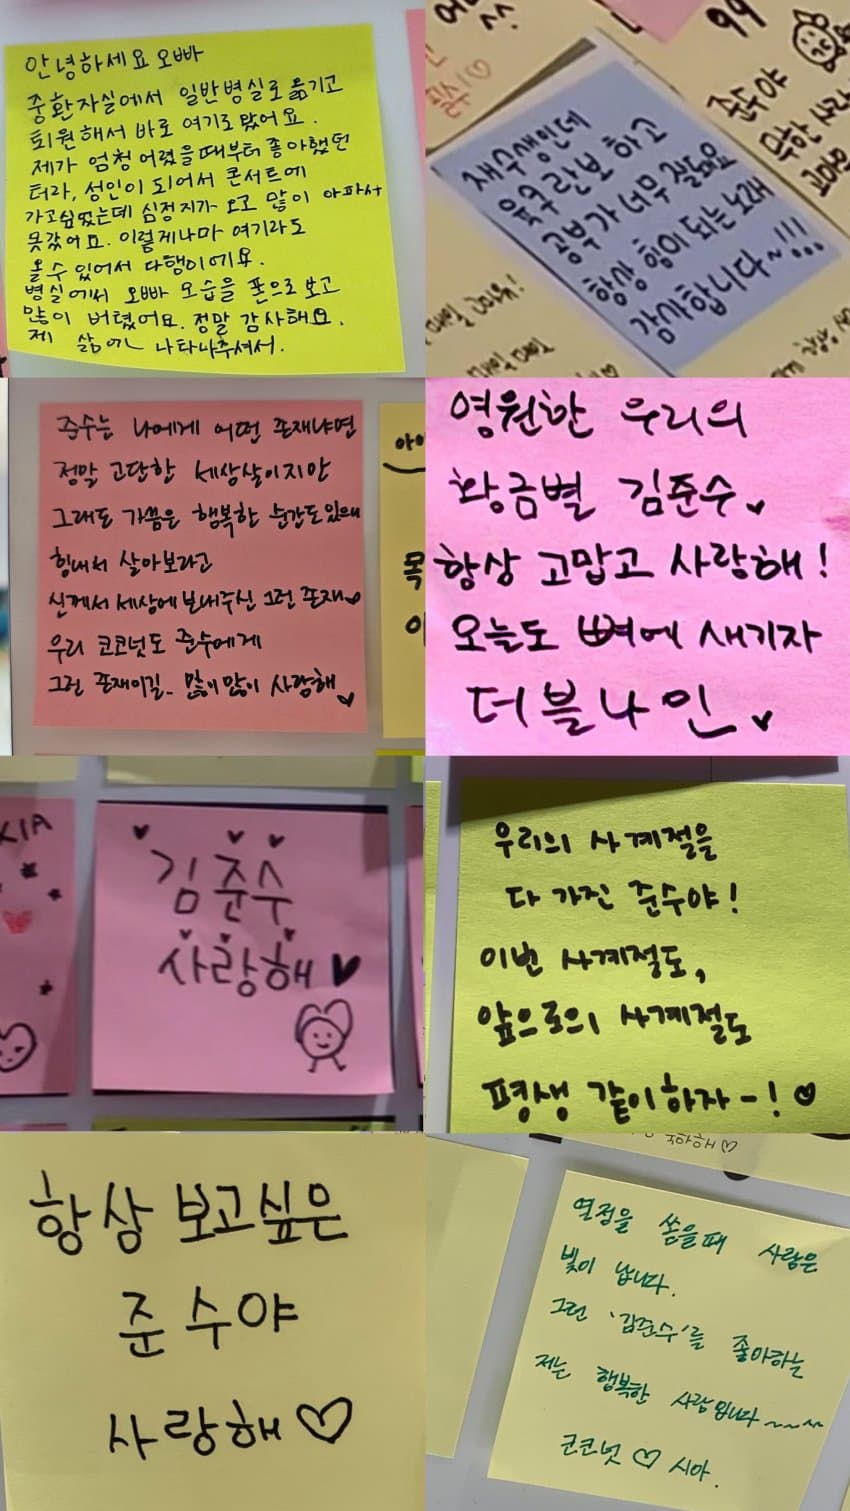 안녕하세요 오빠
중환자실에서 일반병실로 옮기고
퇴원해서 바로 여기로 왔어요.
제가 엄청 어렸을때부터 좋아했던
터라, 성인이 되어서 콘서트에
가고싶었는데 심정지가 오고 많이 아파서
못갔어요. 이렇게나마 여기라도
올수있어서 다행이에요.
병실에서 오빠 모습을 폰으로 보고
많이 버텼어요. 정말 감사해요.
제 삶에 나타나주셔서.
재수생인데
육쿠란보 하고
공부가 너무 잘돼요
항상 힘이 되는 노래
감사합니다~!!!
99
준수야
준수는 나에게 어떤 존재냐면
정말 고단한 세상살이지만
그래도 가끔은 행복한 순간도있으니
힘내서 살아보라고
신께서 세상에 보내주신 그런 존재♥
우리 코코넛도 준수에게
그런 존재이길.. 많이많이 사랑해♥
영원한 우리의
황금별 김준수♥
항상 고맙고 사랑해!
오늘도 뼈에 새기자
더블나인♥
XIA
김준수
사랑해♥
우리의 사계절을
다 가진 준수야!
이번 사계절도,
앞으로의 사계절도
평생 같이하자-!♡
항상 보고싶은
준수야
사랑해♡
열정을 쏟을때 사랑은
빛이 납니다.
그런 '김준수'를 좋아하는
저는 행복한 사람입니다~~^^
코코넛♡시아.